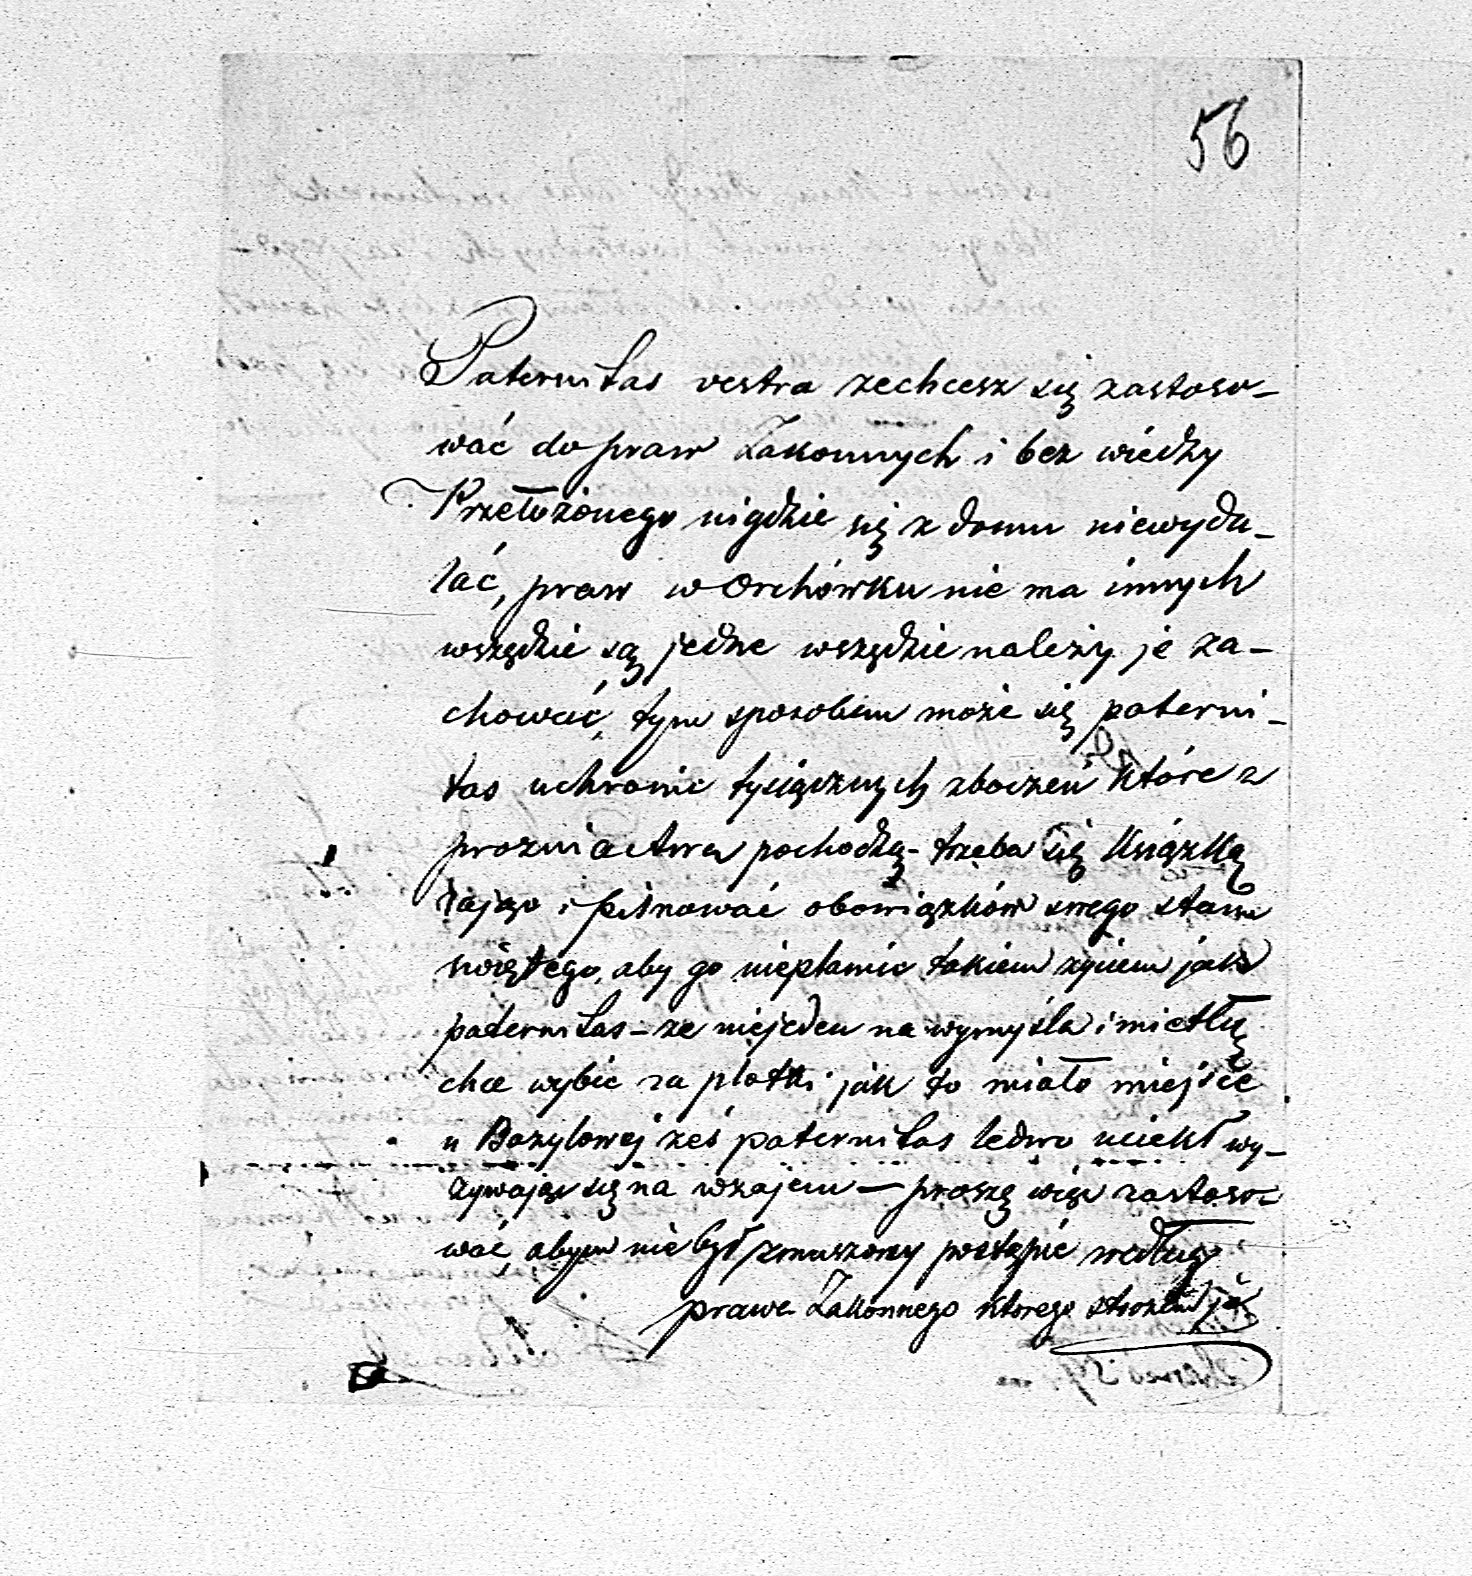 56
Paternitas vestra zechcesz się zastoso-
wać do praw Zakonnych i bez wiedzy
Przełożonego nigdzie się z domu niewyda-
lać, praw w Orchówku nie ma innych
wszędzie są jedne wszędzie należy je za-
chować, tym sposobem może się paterni-
tas uchronic tysiącznych zboczeń które z
prozniactwa pochodzą - trzeba się Książką
zająć i pilnować obowiązków swego stanu
świętego, aby go nieplamic takiem zyciem jak
paternitas - ze niejeden na wymyśla i mietłą
chce wybic za plotki jak to miało miejsce
u Bazylowej ześ paternitas ledwo uciekł wy-
zywając się na wzajem - proszę więc zastoso-
wać, abym nie był zmuszony postąpić według
prawa Zakonnego ktorego strozem ja